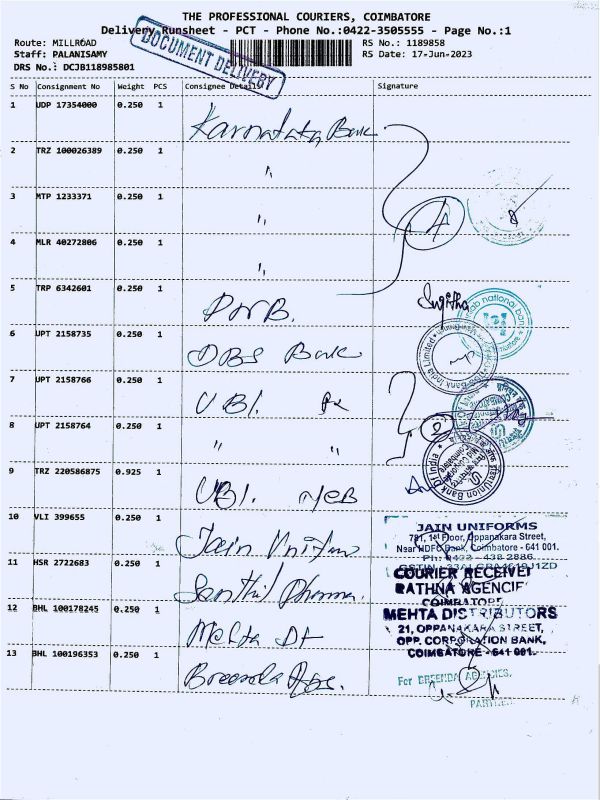 THE PROFESSIONAL COURIERS, COIMBATORE
Delivery Runsheet - PCT - Phone No.:0422-3505555 - Page No.:1
Route: MILLROAD
RS No.: 1189858
Staff: PALANISAMY
RS Date: 17-Jun-2023
DRS No.: DCJB118985801
DOCUMENT DELIVERY
S No Consignment No Weight PCS Consignee Details Signature
1 UDP 17354000 0.250 1 Karnataka Bank
2 TRZ 100026389 0.250 1 "
3 MTP 1233371 0.250 1 "
4 MLR 40272806 0.250 1 "
4
5 TRP 6342601 0.250 1 PNB.
Sujitha
6 UPT 2158735 0.250 1 DBS Bank
7 UPT 2158766 0.250 1 UBI.
8 UPT 2158764 0.250 1 " "
2
9 TRZ 220586875 0.925 1 UBI.
10 VLI 399655 0.250 1 Jain Uniform
JAIN UNIFORMS
781, 1st Floor, Oppanakara Street,
Near HDFC Bank, Coimbatore - 641 001.
11 HSR 2722683 0.250 1 Senthil Pharma.
COURIER RECEIVED
RATHNA AGENCIE
COIMBATORE
12 BHL 100178245 0.250 1 Mehta Dt
MEHTA DISTRIBUTORS
21, OPPANAKARA STREET,
OPP. CORPORATION BANK,
COIMBATORE - 641 001.
13 BHL 100196353 0.250 1 Breenda Ags.
For BREENDA AGENCIES,
PARTNER